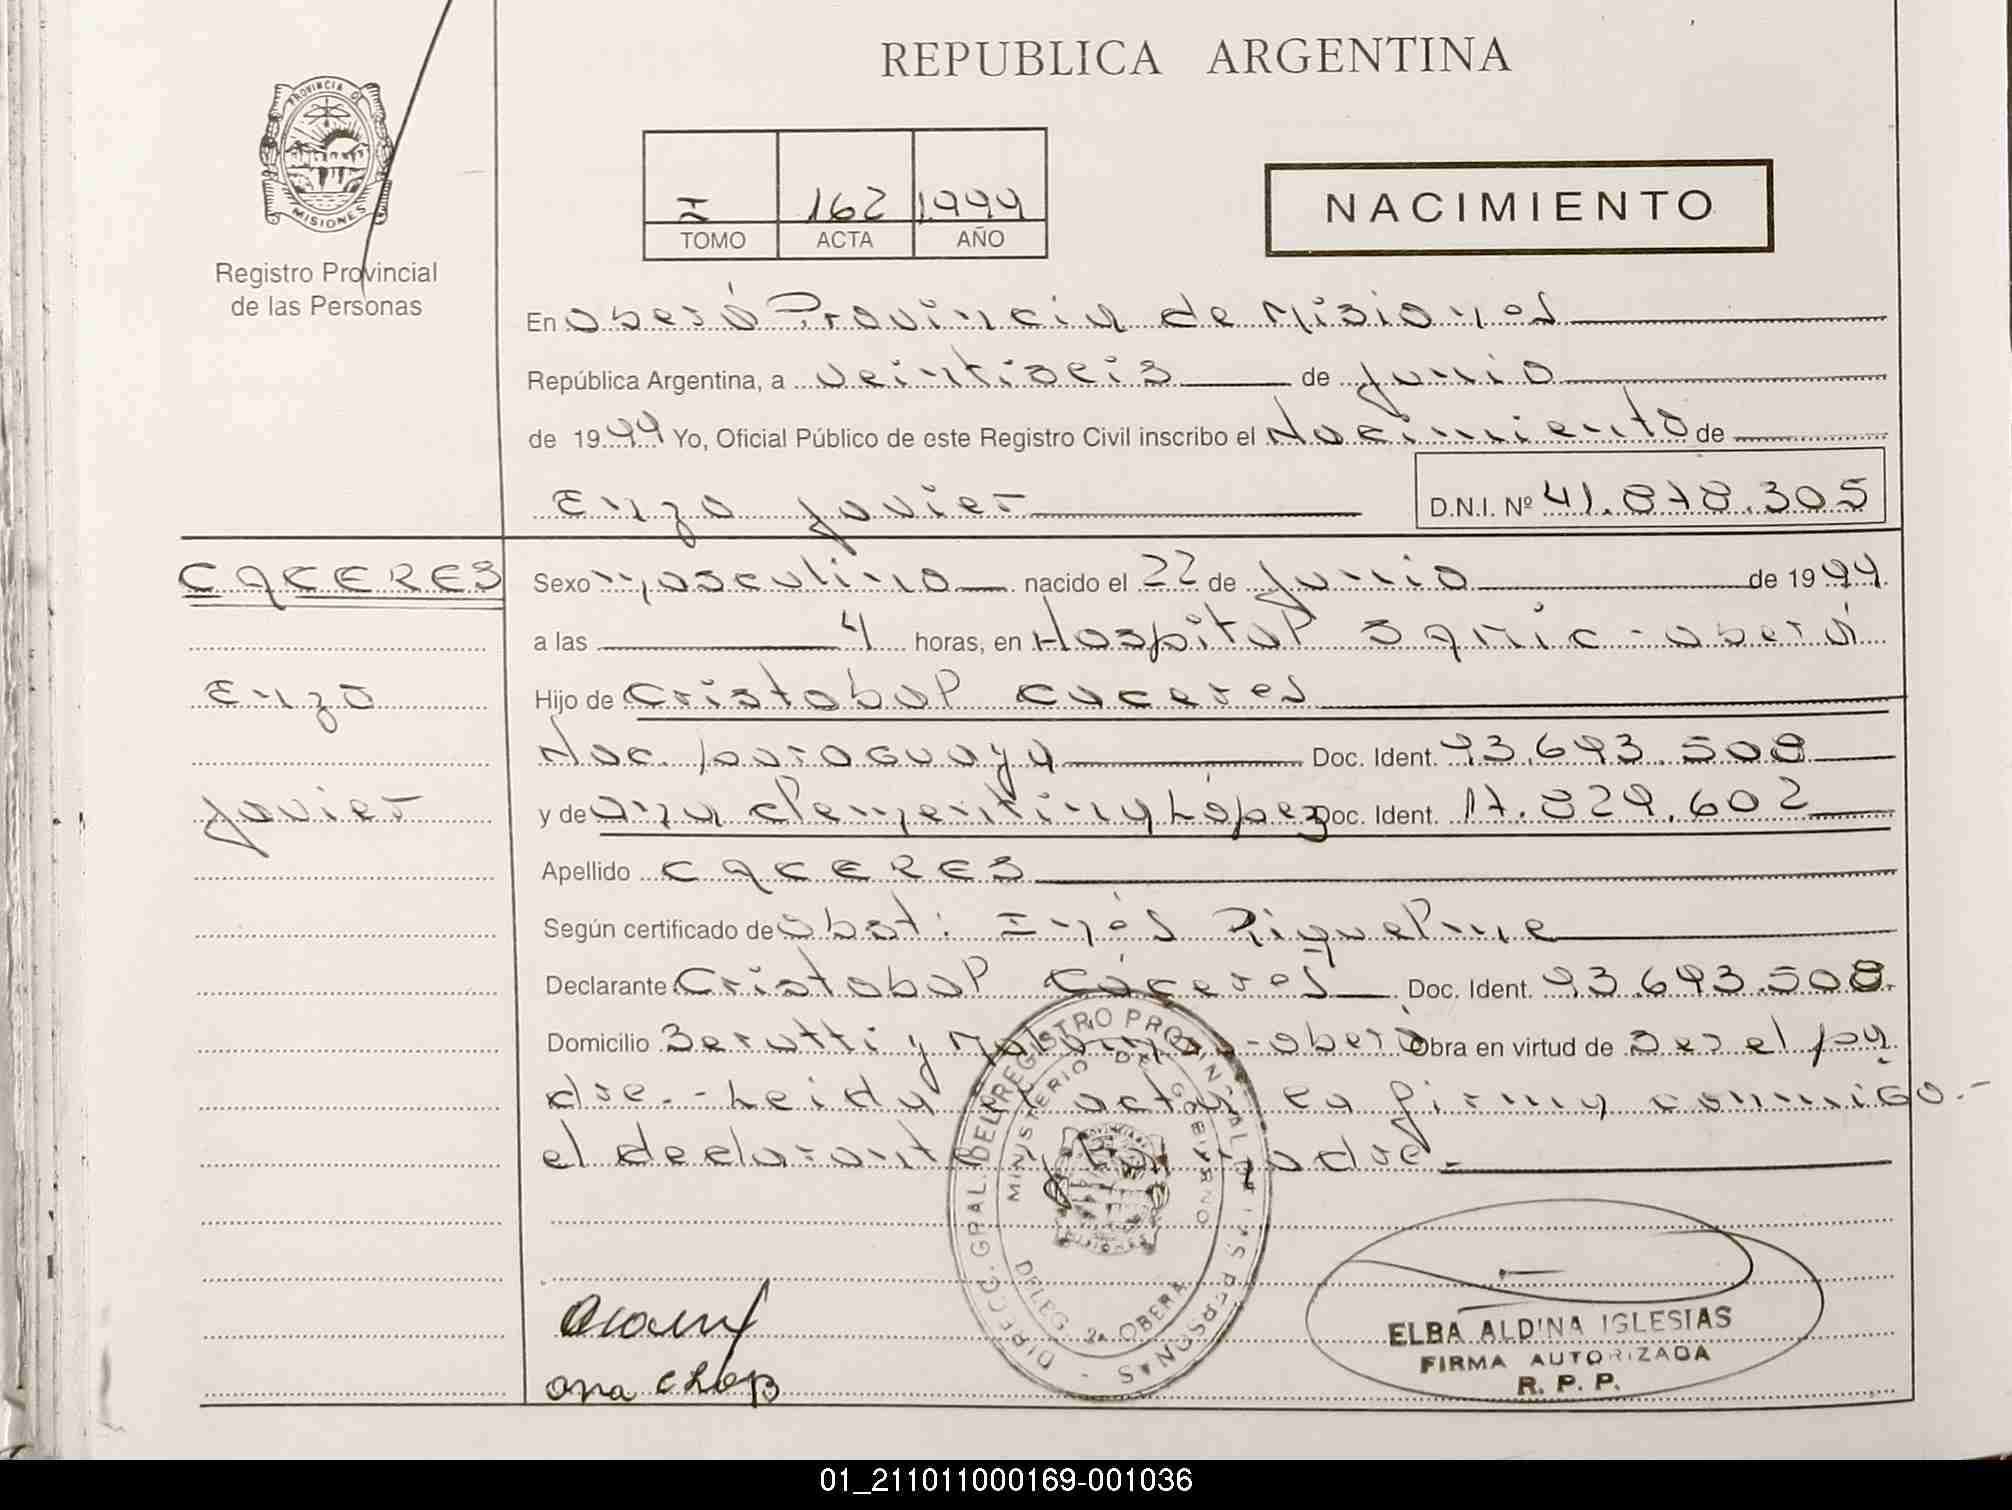 REPUBLICA ARGENTINA
PROVINCIA DE
MISIONES
Registro Provincial
de las Personas
I 162 1999
TOMO ACTA AÑO
NACIMIENTO
En Oberá Provincia de Misiones
República Argentina, a veintiseis de Junio
de 1999 Yo, Oficial Público de este Registro Civil inscribo el Nacimiento de
Enzo Javier D.N.I. Nº 41.878.305
CACERES
Enzo
Javier
Sexo masculino nacido el 22 de Junio de 1999
a las 4 horas, en Hospital Samic - Oberá
Hijo de Cristobal Caceres
Nac. paraguaya Doc. Ident. 93.693.508
y de Ana Clementina López Doc. Ident. 17.829.602
Apellido CACERES
Según certificado de Obst: Inés Riquelme
Declarante Cristobal Cáceres Doc. Ident. 93.693.508
Domicilio Berutti y - Oberá Obra en virtud de ser el pa
dre.- Leida el acta, la firma conmigo.-
el declarante y la madre.-
DIRECC. GRAL. DEL REGISTRO PROVINCIAL DE LAS PERSONAS
MINISTERIO DE GOBIERNO
MISIONES
DELEG. 2a OBERA
Ana C López
ELBA ALDINA IGLESIAS
FIRMA AUTORIZADA
R. P. P.
01_211011000169-001036